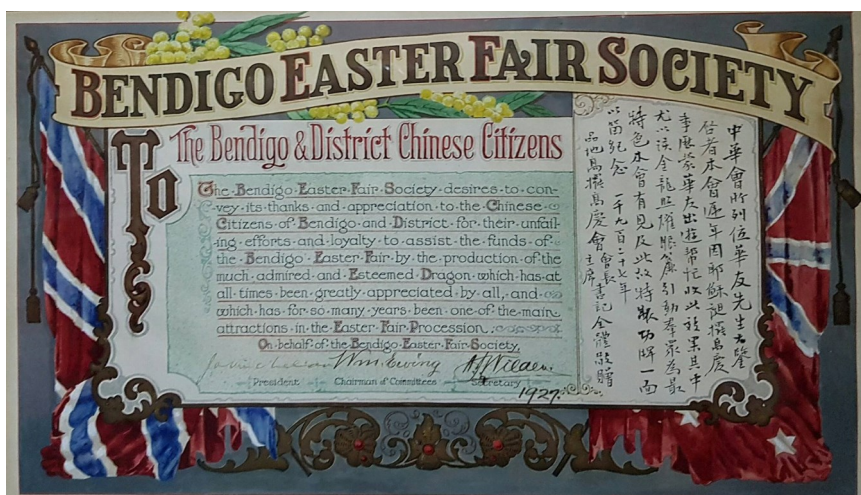 BENDIGO EASTER FAIR SOCIETY
To
The Bendigo & District Chinese Citizens
The Bendigo Easter Fair Society desires to con-
vey its thanks and appreciation to the Chinese
Citizens of Bendigo and District for their unfail-
ing efforts and loyalty to assist the funds of
the Bendigo Easter Fair by the production of the
much admired and Esteemed Dragon which has at
all times been greatly appreciated by all, and
which has for so many years been one of the main
attractions in the Easter Fair Procession.
On behalf of the Bendigo Easter Fair Society
Wm. Ewing
President Chairman of Committees Secretary
1927.
中華會所列位華友先生大鑒
啓者本會逐年因耶穌誕
華友出遊幫忙收此效果其中
尤以該金龍照耀眼簾引動羣眾為最
特色本會有見及此故特敬功牌一面
以留紀念 一千九百二十七年
慶會會長主席書記全體敬贈